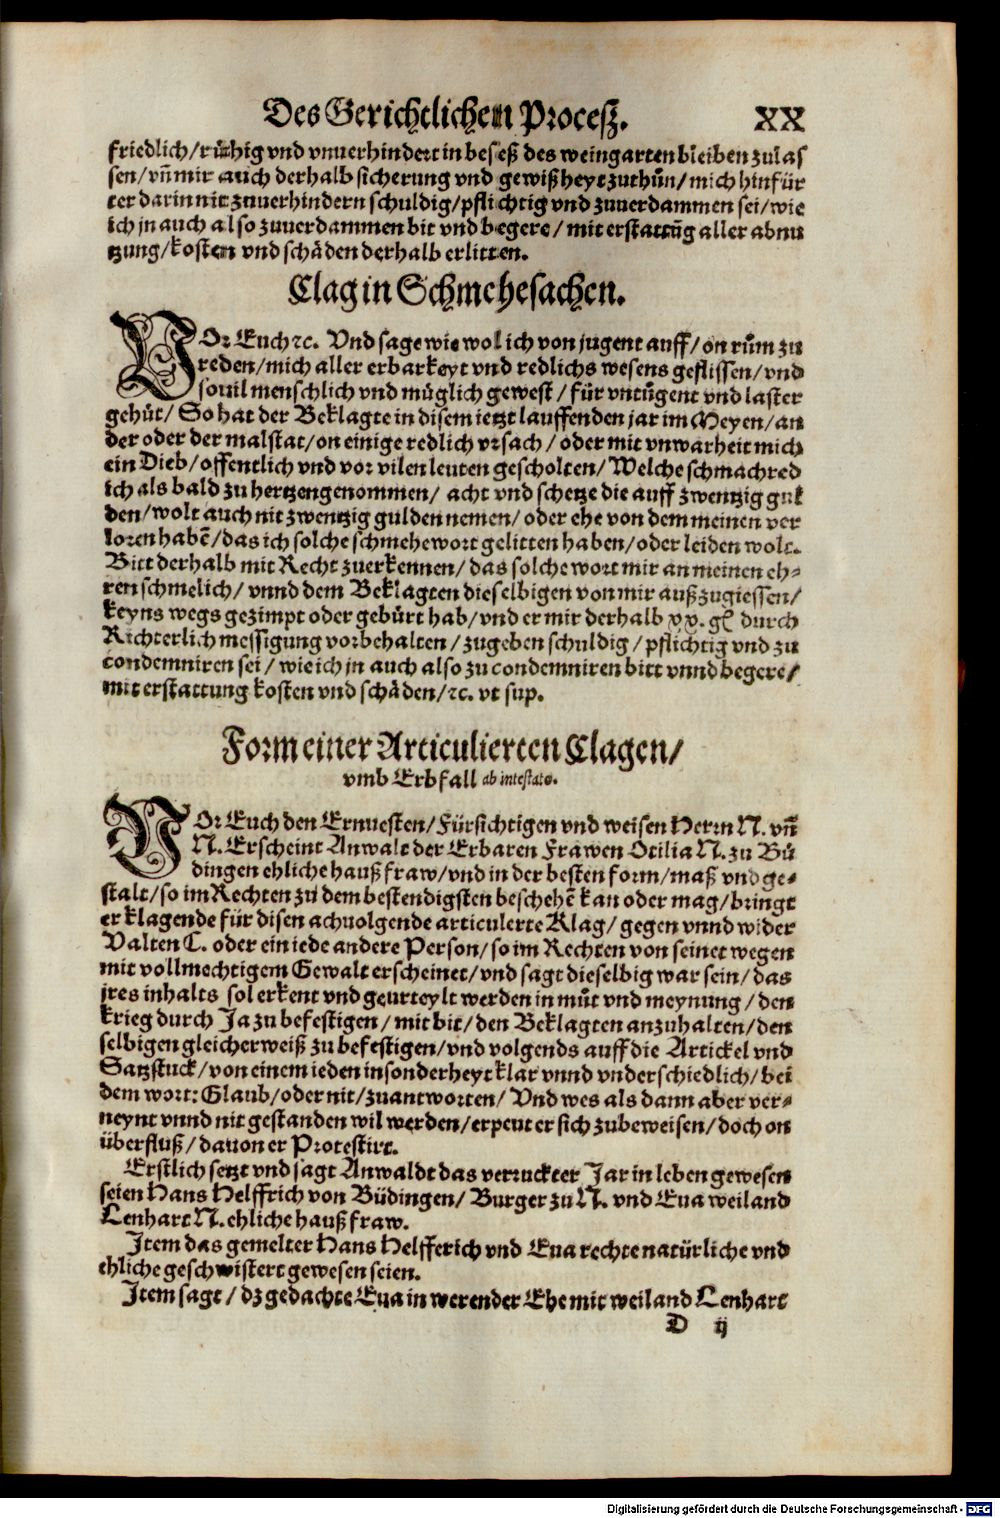 Des Gerichtlichen Procesz. XX
friedlich/rühig vnd vnuerhindert in beseß des weingarten bleiben zulas
sen/vñ mir auch derhalb sicherung vnd gewißheyt zuthůn/mich hinfür
ter darinnit zuuerhindern schuldig/pflichtig vnd zuuerdammen sei/wie
ich jn auch also zuuerdammen bit vnd begere/ mit erstattũg aller abnu
tzung/kosten vnd schäden derhalb erlitten.
Clag in Schmehesachen.
VOr Euch ꝛc. Vnd sage wie wol ich von jugent auff/on rům zu
reden/mich aller erbarkeyt vnd redlichs wesens geflissen/vnd
souil menschlich vnd müglich gewest/ für vntũgent vnd laster
gehüt/ So hat der Beklagte in disem ietzt lauffenden jar im Meyen/an
der oder der malstat/on einige redlich vrsach/ oder mit vnwarheit mich
ein Dieb/offentlich vnd vor vilen leuten gescholten/Welche schmachred
ich als bald zu hertzen genommen/ acht vnd schetze die auff zwentzig gul
den/wolt auch nit zwentzig gulden nemen/oder ehe von dem meinen ver
loren habẽ/das ich solche schmehewort gelitten haben/oder leiden wolt.
Bitt derhalb mit Recht zuerkennen/das solche wort mir an meinen eh-
ren schmelich/ vnnd dem Beklagten dieselbigen von mir außzugiessen/
keyns wegs gezimpt oder gebürt hab/vnd er mir derhalb xx. gl durch
Richterlich messigung vorbehalten/zugeben schuldig/pflichtig vnd zu
condemniren sei/ wie ich jn auch also zu condemniren bitt vnnd begere/
mit erstattung kosten vnd schäden/ꝛc. vt sup.
Form einer Articulierten Clagen/
vmb Erbfall ab intestato.
VOr Euch den Ernuesten/Fürsichtigen vnd weisen Herrn N. vñ
N. Erscheint Anwalt der Erbaren Frawen Otilia N. zu Bü
dingen ehliche haußfraw/vnd in der besten form/maß vnd ge-
stalt/so im Rechten zů dem bestendigsten beschehẽ kan oder mag/bringt
er klagende für disen achuolgende articulerte Klag/ gegen vnnd wider
Valten C. oder ein iede andere Person/so im Rechten von seinet wegen
mit vollmechtigem Gewalt erscheinet/vnd sagt dieselbig war sein/das
jres inhalts sol erkent vnd geurteylt werden in můt vnd meynung/den
krieg durch Ja zu befestigen/mit bit/den Beklagten anzuhalten/den
selbigen gleicherweiß zu befestigen/vnd volgends auff die Artickel vnd
Satzstuck/von einem ieden insonderheyt klar vnnd vnderschiedlich/bei
dem wort: Glaub/oder nit/zuantworten/ Vnd wes als dann aber ver-
neynt vnnd nit gestanden wil werden/erpeut er sich zubeweisen/doch on
überfluß/dauon er Protestirt.
Erstlich setzt vnd sagt Anwaldt das verruckter Jar in leben gewesen
seien Hans Helffrich von Büdingen/ Burger zu N. vnd Eua weiland
Lenhart N. ehliche haußfraw.
Item das gemelter Hans Helfferich vnd Eua rechte natürliche vnd
ehliche geschwistert gewesen seien.
Item sagt/dz gedachte Eua in werender Ehe mit weiland Lenhart
D ij
Digitalisierung gefördert durch die Deutsche Forschungsgemeinschaft - DFG